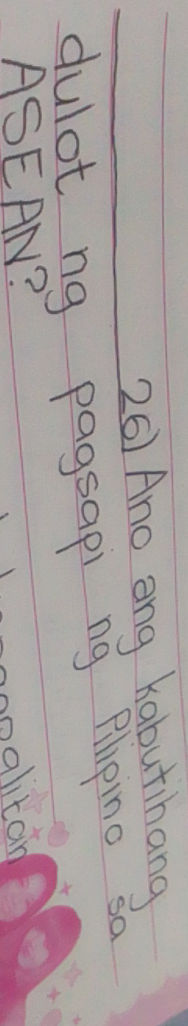 26) Ano ang kabutihang
dulot ng pagsapi ng Pilipino sa
ASEAN?